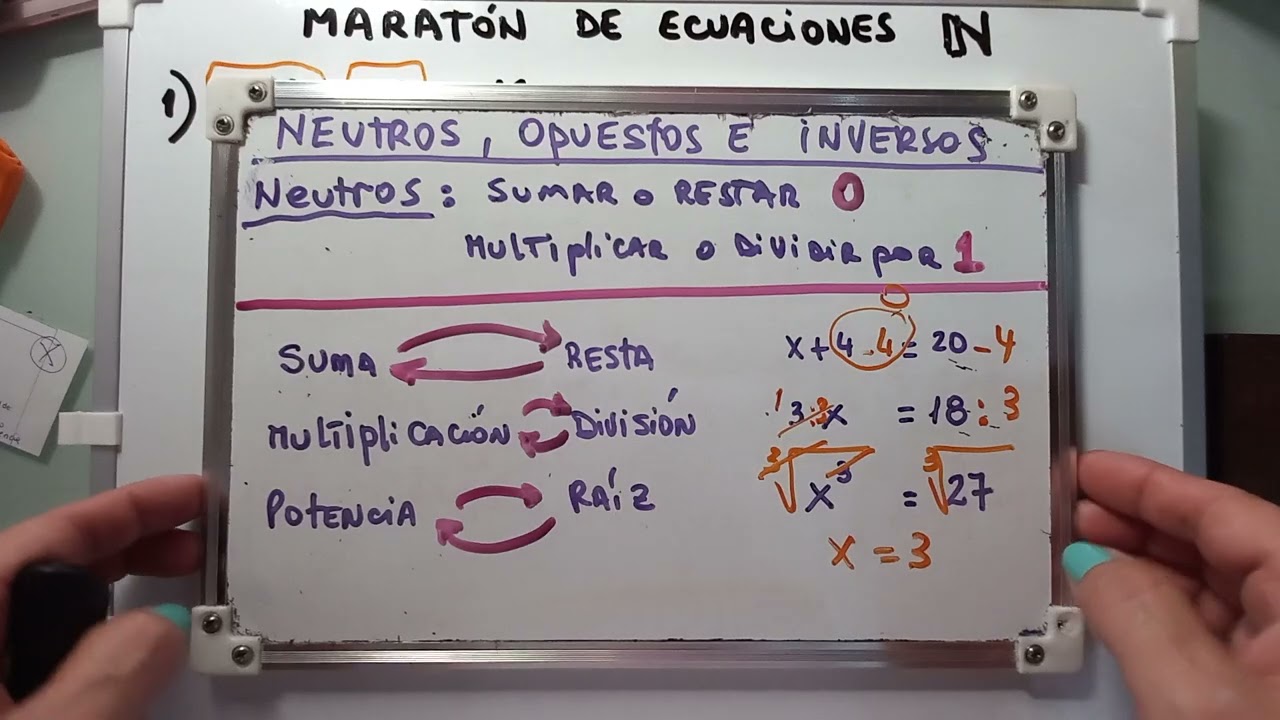 MARATÓN DE ECUACIONES ℕ
1)
NEUTROS, OPUESTOS E INVERSOS
Neutros: SUMAR O RESTAR 0
MULTIPLICAR O DIVIDIR POR 1
0
SUMA RESTA x+4-4=20-4
MULTIPLICACIÓN DIVISIÓN 1 3:3x = 18:3
POTENCIA RAÍZ ³√x³ = ³√27
x = 3